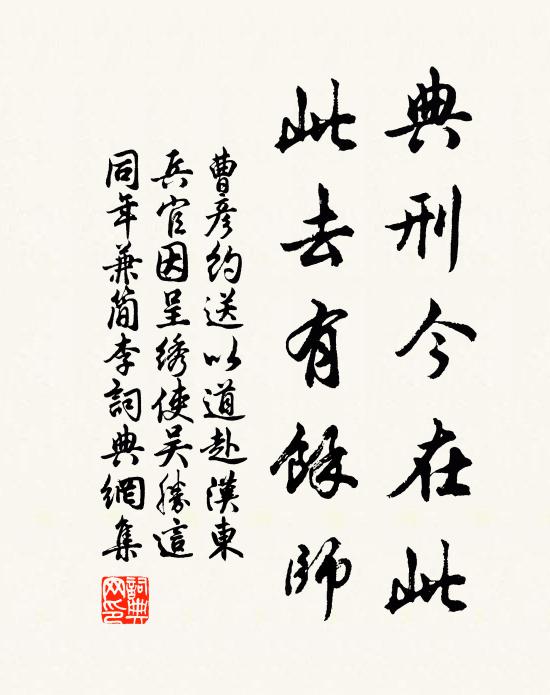 典刑今在此
此去有餘師
曹彥約送以道赴漢東
兵官因呈綉使吴勝這
同年兼简李詞典網集
詞典网印